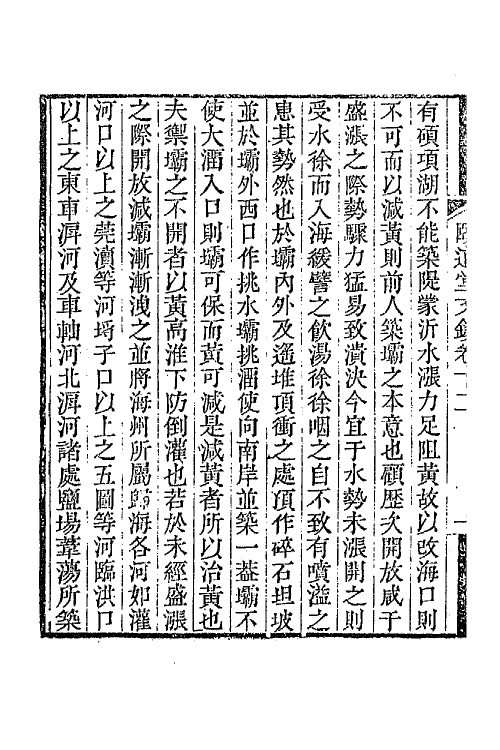 有碩項湖不能築隄蒙沂水漲力足阻黃故以改海口則
不可而以減黃則前人築壩之本意也顧歷次開放咸于
盛漲之際勢驟力猛易致潰決今宜于水勢未漲開之則
受水徐而入海緩譬之飲湯徐徐咽之自不致有噴溢之
患其勢然也於壩內外及遙堆頂衝之處頂作碎石坦坡
並於壩外西口作挑水壩挑溜使向南岸並築一葢壩不
使大溜入口則壩可保而黃可減是減黃者所以治黃也
夫禦壩之不開者以黃高淮下防倒灌也若於未經盛漲
之際開放減壩漸漸洩之並將海州所屬歸海各河如灌
河口以上之莞瀆等河埒子口以上之五圖等河臨洪口
以上之東車潺河及車軸河北潺河諸處鹽場葦蕩所築
頤道堂文鈔卷十二